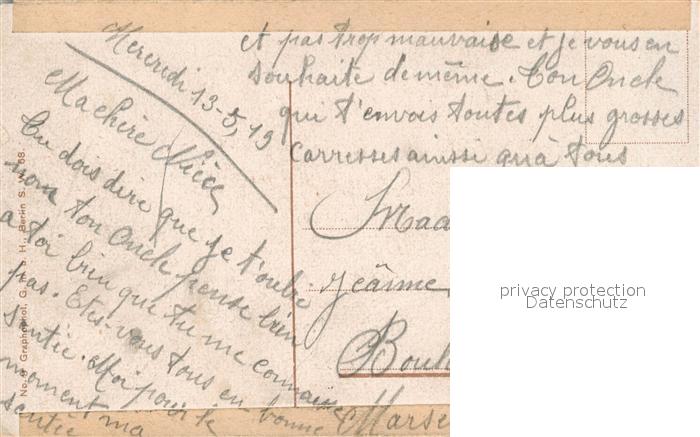 Mercredi 13-5, 19
Ma chère Nièce
Tu dois dire que je t'oublie
non ton Oncle pense bien
a toi bien que tu me connaisse
pas. Etes-vous tous en bonne
santée. Moi pour le
moment ma
santée
et pas trop mauvaise et je vous en
souhaite de même. Ton Oncle
qui t'envois toutes plus grosses
carresses ainssi qu'à tous
Maa
Jeanne
Boul
Marse
privacy protection
Datenschutz
Berlin S. W. 68.